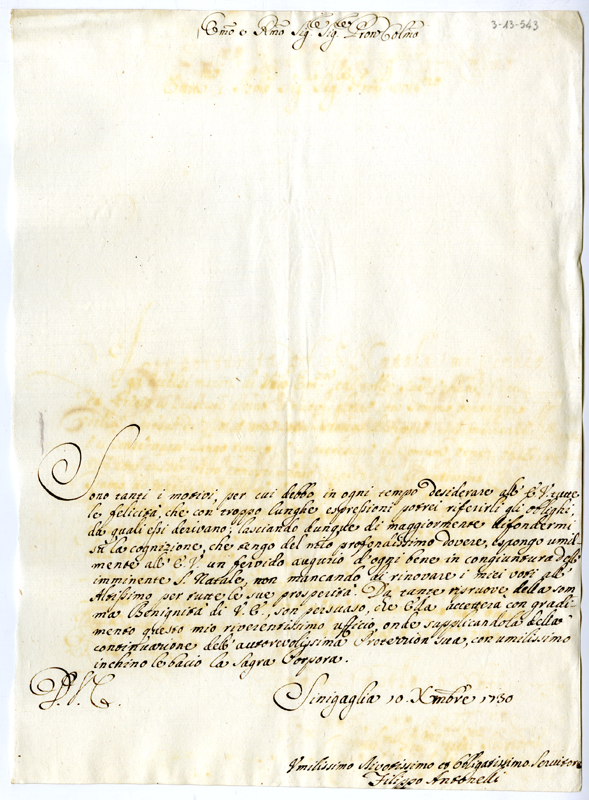 3-13-543
Emo e Rmo Sig.re Sig.re Pron Colmo
Sono tanti i motivi, per cui debbo in ogni tempo desiderare all' E.V. tutte
le felicità, che con troppo lunghe espressioni potrei riferirli gli oblighi,
da quali essi derivano, lasciando dunque di maggiormente difondermi
sù la cognizione, che tengo del mio profondissimo dovere, espongo umil
mente all' E.V. un fervido augurio d'ogni bene in congiuntura dell'
imminente S. Natale, non mancando di rinovare i miei voti all'
Altissimo per tutte le sue prosperità. Da tante ripruove della som
ma Benignità di V.E., son persuaso, che Ella accetterà con gradi
mento questo mio riverentissimo ufficio, onde supplicandola della
continuazione dell' autorevolissima Protezzion sua, con umilissimo
inchino le bacio la Sagra Porpora.
Sinigaglia 10 Xmbre 1730
Umilissimo Divotissimo et Obligatissimo Servitore
Filippo Antonelli